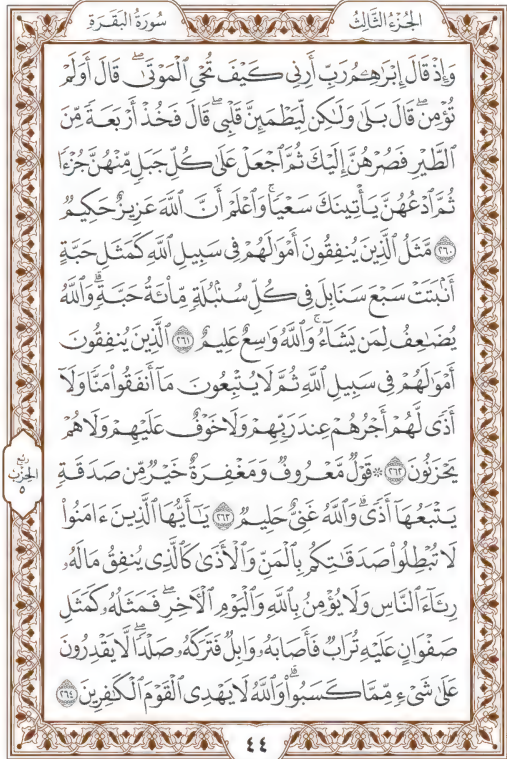 الجُزْءُ الثَّالِثُ
سُورَةُ البَقَرَةِ
وَإِذۡ قَالَ إِبۡرَٰهِـۧمُ رَبِّ أَرِنِي كَيۡفَ تُحۡيِ ٱلۡمَوۡتَىٰۖ قَالَ أَوَلَمۡ
تُؤۡمِنۖ قَالَ بَلَىٰ وَلَٰكِن لِّيَطۡمَئِنَّ قَلۡبِيۖ قَالَ فَخُذۡ أَرۡبَعَةٗ مِّنَ
ٱلطَّيۡرِ فَصُرۡهُنَّ إِلَيۡكَ ثُمَّ ٱجۡعَلۡ عَلَىٰ كُلِّ جَبَلٖ مِّنۡهُنَّ جُزۡءٗا
ثُمَّ ٱدۡعُهُنَّ يَأۡتِينَكَ سَعۡيٗاۚ وَٱعۡلَمۡ أَنَّ ٱللَّهَ عَزِيزٌ حَكِيمٞ
٢٦٠ مَّثَلُ ٱلَّذِينَ يُنفِقُونَ أَمۡوَٰلَهُمۡ فِي سَبِيلِ ٱللَّهِ كَمَثَلِ حَبَّةٍ
أَنۢبَتَتۡ سَبۡعَ سَنَابِلَ فِي كُلِّ سُنۢبُلَةٖ مِّاْئَةُ حَبَّةٖۗ وَٱللَّهُ
يُضَٰعِفُ لِمَن يَشَآءُۚ وَٱللَّهُ وَٰسِعٌ عَلِيمٌ ٢٦١ ٱلَّذِينَ يُنفِقُونَ
أَمۡوَٰلَهُمۡ فِي سَبِيلِ ٱللَّهِ ثُمَّ لَا يُتۡبِعُونَ مَآ أَنفَقُواْ مَنّٗا وَلَآ
أَذٗى لَّهُمۡ أَجۡرُهُمۡ عِندَ رَبِّهِمۡ وَلَا خَوۡفٌ عَلَيۡهِمۡ وَلَا هُمۡ
يَحۡزَنُونَ ٢٦٢ ۞ قَوۡلٞ مَّعۡرُوفٞ وَمَغۡفِرَةٌ خَيۡرٞ مِّن صَدَقَةٖ
يَتۡبَعُهَآ أَذٗىۗ وَٱللَّهُ غَنِيٌّ حَلِيمٞ ٢٦٣ يَٰٓأَيُّهَا ٱلَّذِينَ ءَامَنُواْ
لَا تُبۡطِلُواْ صَدَقَٰتِكُم بِٱلۡمَنِّ وَٱلۡأَذَىٰ كَٱلَّذِي يُنفِقُ مَالَهُۥ
رِئَآءَ ٱلنَّاسِ وَلَا يُؤۡمِنُ بِٱللَّهِ وَٱلۡيَوۡمِ ٱلۡأٓخِرِۖ فَمَثَلُهُۥ كَمَثَلِ
صَفۡوَانٍ عَلَيۡهِ تُرَابٞ فَأَصَابَهُۥ وَابِلٞ فَتَرَكَهُۥ صَلۡدٗاۖ لَّا يَقۡدِرُونَ
عَلَىٰ شَيۡءٖ مِّمَّا كَسَبُواْۗ وَٱللَّهُ لَا يَهۡدِي ٱلۡقَوۡمَ ٱلۡكَٰفِرِينَ ٢٦٤
ربع
الحزب
٥
٤٤